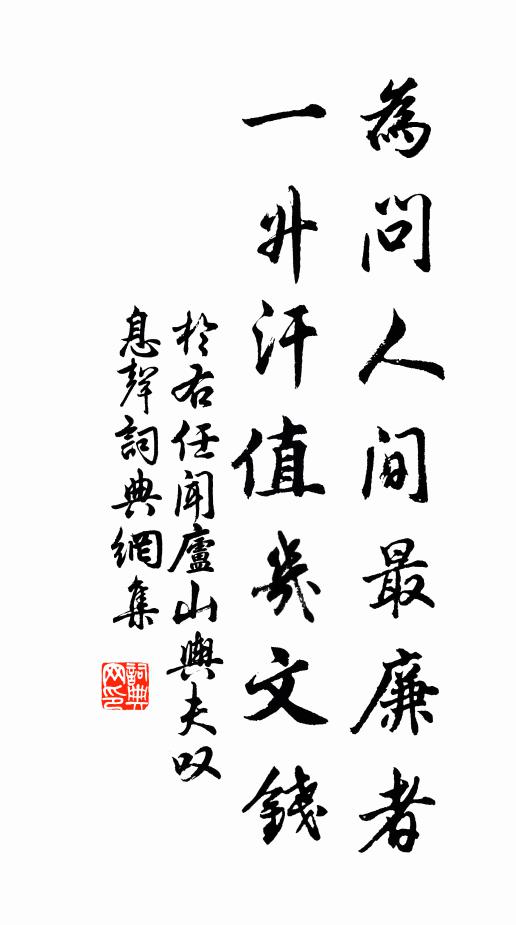 為問人間最廉者
一升汗值幾文錢
於右任聞廬山輿夫叹
息聲詞典網集
詞典
网印